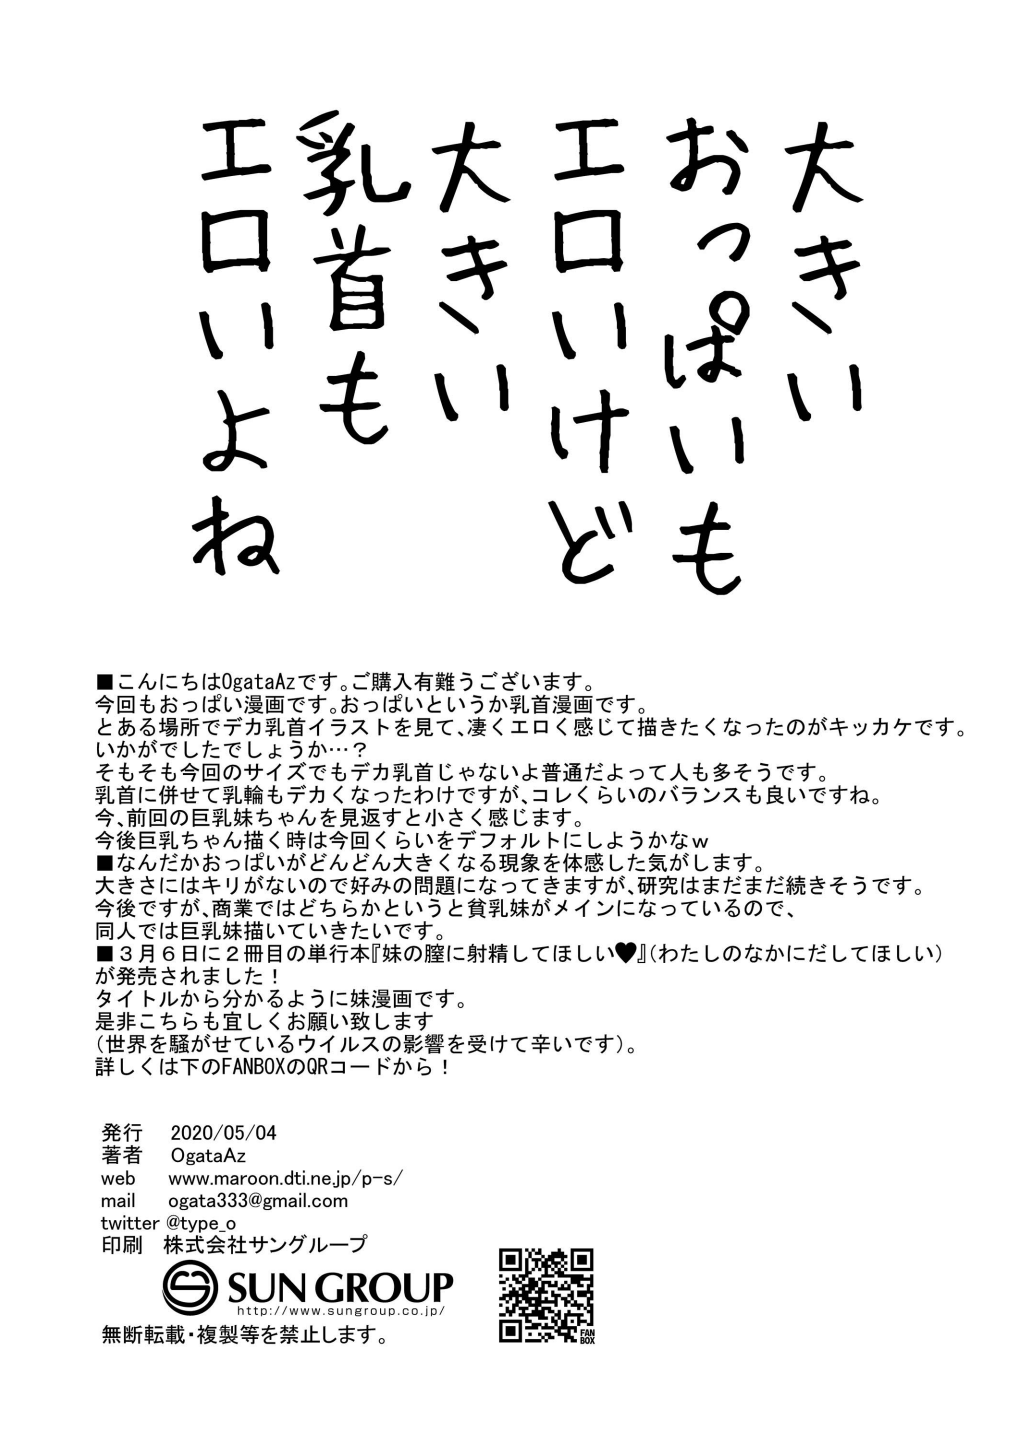 大きい
おっぱいも
エロいけど
大きい
乳首も
エロいよね
■こんにちはOgataAzです。ご購入有難うございます。
今回もおっぱい漫画です。おっぱいというか乳首漫画です。
とある場所でデカ乳首イラストを見て、凄くエロく感じて描きたくなったのがキッカケです。
いかがでしたでしょうか…？
そもそも今回のサイズでもデカ乳首じゃないよ普通だよって人も多そうです。
乳首に併せて乳輪もデカくなったわけですが、コレくらいのバランスも良いですね。
今、前回の巨乳妹ちゃんを見返すと小さく感じます。
今後巨乳ちゃん描く時は今回くらいをデフォルトにしようかなｗ
■なんだかおっぱいがどんどん大きくなる現象を体感した気がします。
大きさにはキリがないので好みの問題になってきますが、研究はまだまだ続きそうです。
今後ですが、商業ではどちらかというと貧乳妹がメインになっているので、
同人では巨乳妹描いていきたいです。
■３月６日に２冊目の単行本『妹の膣に射精してほしい♥』（わたしのなかにだしてほしい）
が発売されました！
タイトルから分かるように妹漫画です。
是非こちらも宜しくお願い致します
（世界を騒がせているウイルスの影響を受けて辛いです）。
詳しくは下のFANBOXのQRコードから！
発行 2020/05/04
著者 OgataAz
web www.maroon.dti.ne.jp/p-s/
mail ogata333@gmail.com
twitter @type_o
印刷 株式会社サングループ
SUN GROUP
http://www.sungroup.co.jp/
無断転載・複製等を禁止します。
FAN
BOX